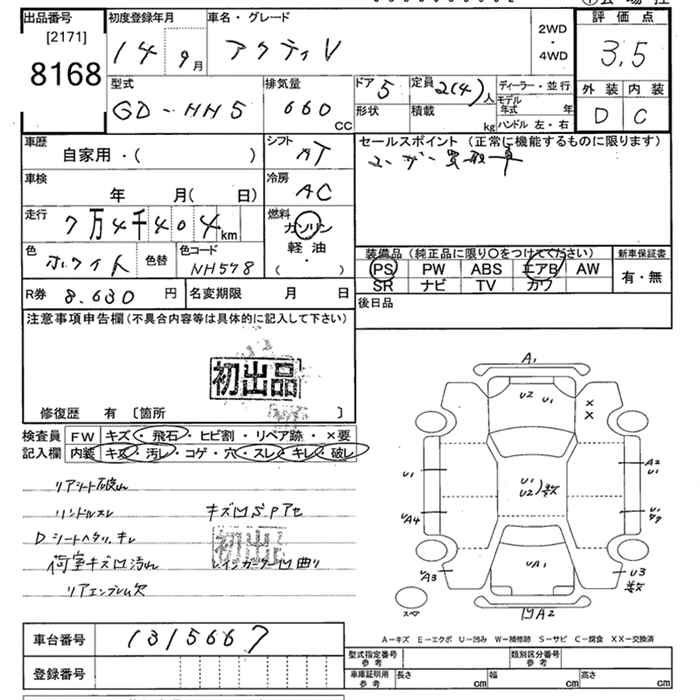 出品番号 初度登録年月 車名・グレード ①会場控
[2171] 8168
14 9月 アクティV
2WD ・ 4WD
評価点 3.5
型式 GD-HH5 排気量 660 CC
ドア 5 定員 2(4)人 形状 積載 kg
ディーラー・並行
モデル年式 年
ハンドル 左・右
外装 内装
D C
車歴 自家用・( )
シフト AT
セールスポイント (正常に機能するものに限ります)
ユーザー買取車
車検 年 月( 日)
冷房 AC
走行 7万4千404km
燃料 ガソリン 軽油 ( ・ )
色 ホワイト 色替 色コード NH578
装備品(純正品に限り〇をつけてください) 新車保証書
PS PW ABS エアB AW 有・無
SR ナビ TV カワ
R券 8.630 円 名変期限 月 日
後日品
注意事項申告欄(不具合内容等は具体的に記入して下さい)
初出品
修復歴 有 〔箇所 〕
検査員 FW キズ・飛石・ヒビ割・リペア跡・×要
記入欄 内装 キズ・汚レ・コゲ・穴・スレ・キレ・破レ
リアシート破れ
ハンドルスレ キズ凹SPアセ
Dシートヘタリ、キレ
荷室キズ凹汚れ 凹曲リ
リアエンブレム欠
A1
U2 U1
× ×
U1 A2 U1
U1 U2 数
UA4 U1
UA1
UA3 U3 数
スペア 凹A2
A−キズ E−エクボ U−凹み W−補修跡 S−サビ C−腐食 XX−交換済
車台番号 1315667
登録番号
型式指定番号 参考 類別区分番号 参考
車庫証明用 参考 長さ cm 幅 cm 高さ cm